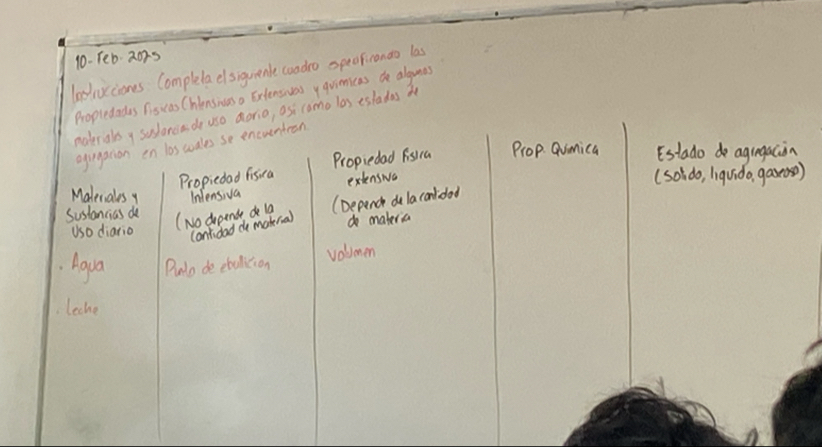 10-Feb-2025
Instrucciones Completa el siguiente cuadro especificando las
Propiedades Fisicas (Intensivas o Extensivas y quimicas de algunos
materiales y sustancias de uso diario, asi como los estados de
agregacion en los cuales se encuentran.
Materiales y
Sustancias de
Uso diario
Propiedad fisica
Intensiva
(No depende de la
cantidad de materia)
Propiedad fisica
extensiva
(Depende de la cantidad
de materia
Prop. Quimica
Estado de agregación
(Solido, liquido, gaseoso)
. Agua
Punto de ebullicion
Volumen
. Leche